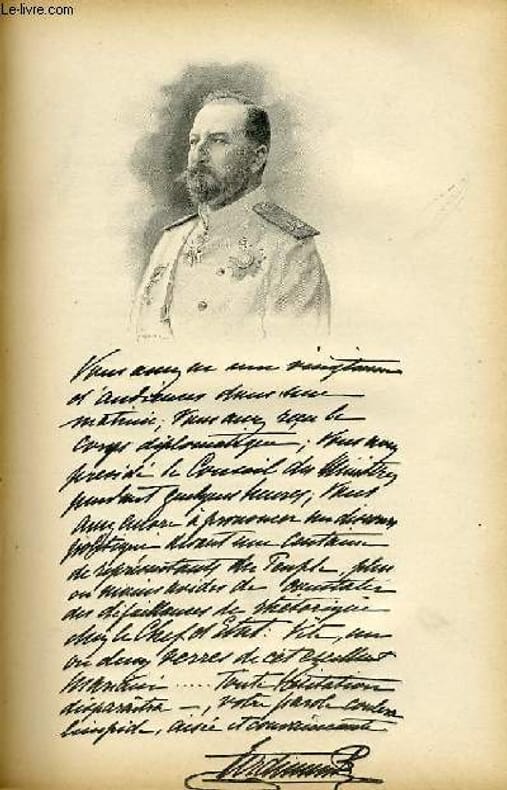 Le-livre.com
Vous avez eu une vingtaine
d'audiences dans une
matinée, vous avez reçu le
corps diplomatique; vous avez
présidé le Conseil des Ministres
pendant quelques heures; vous
avez encore à prononcer un discours
politique devant une centaine
de représentants du Peuple, plus
ou moins avides de constater
des défaillances de rhétorique
chez le Chef d'Etat: Vite, un
ou deux verres de cet excellent
Mariani ..... toute hésitation
disparaîtra –, votre parole coulera
limpide, aisée et convaincante
Ferdinand